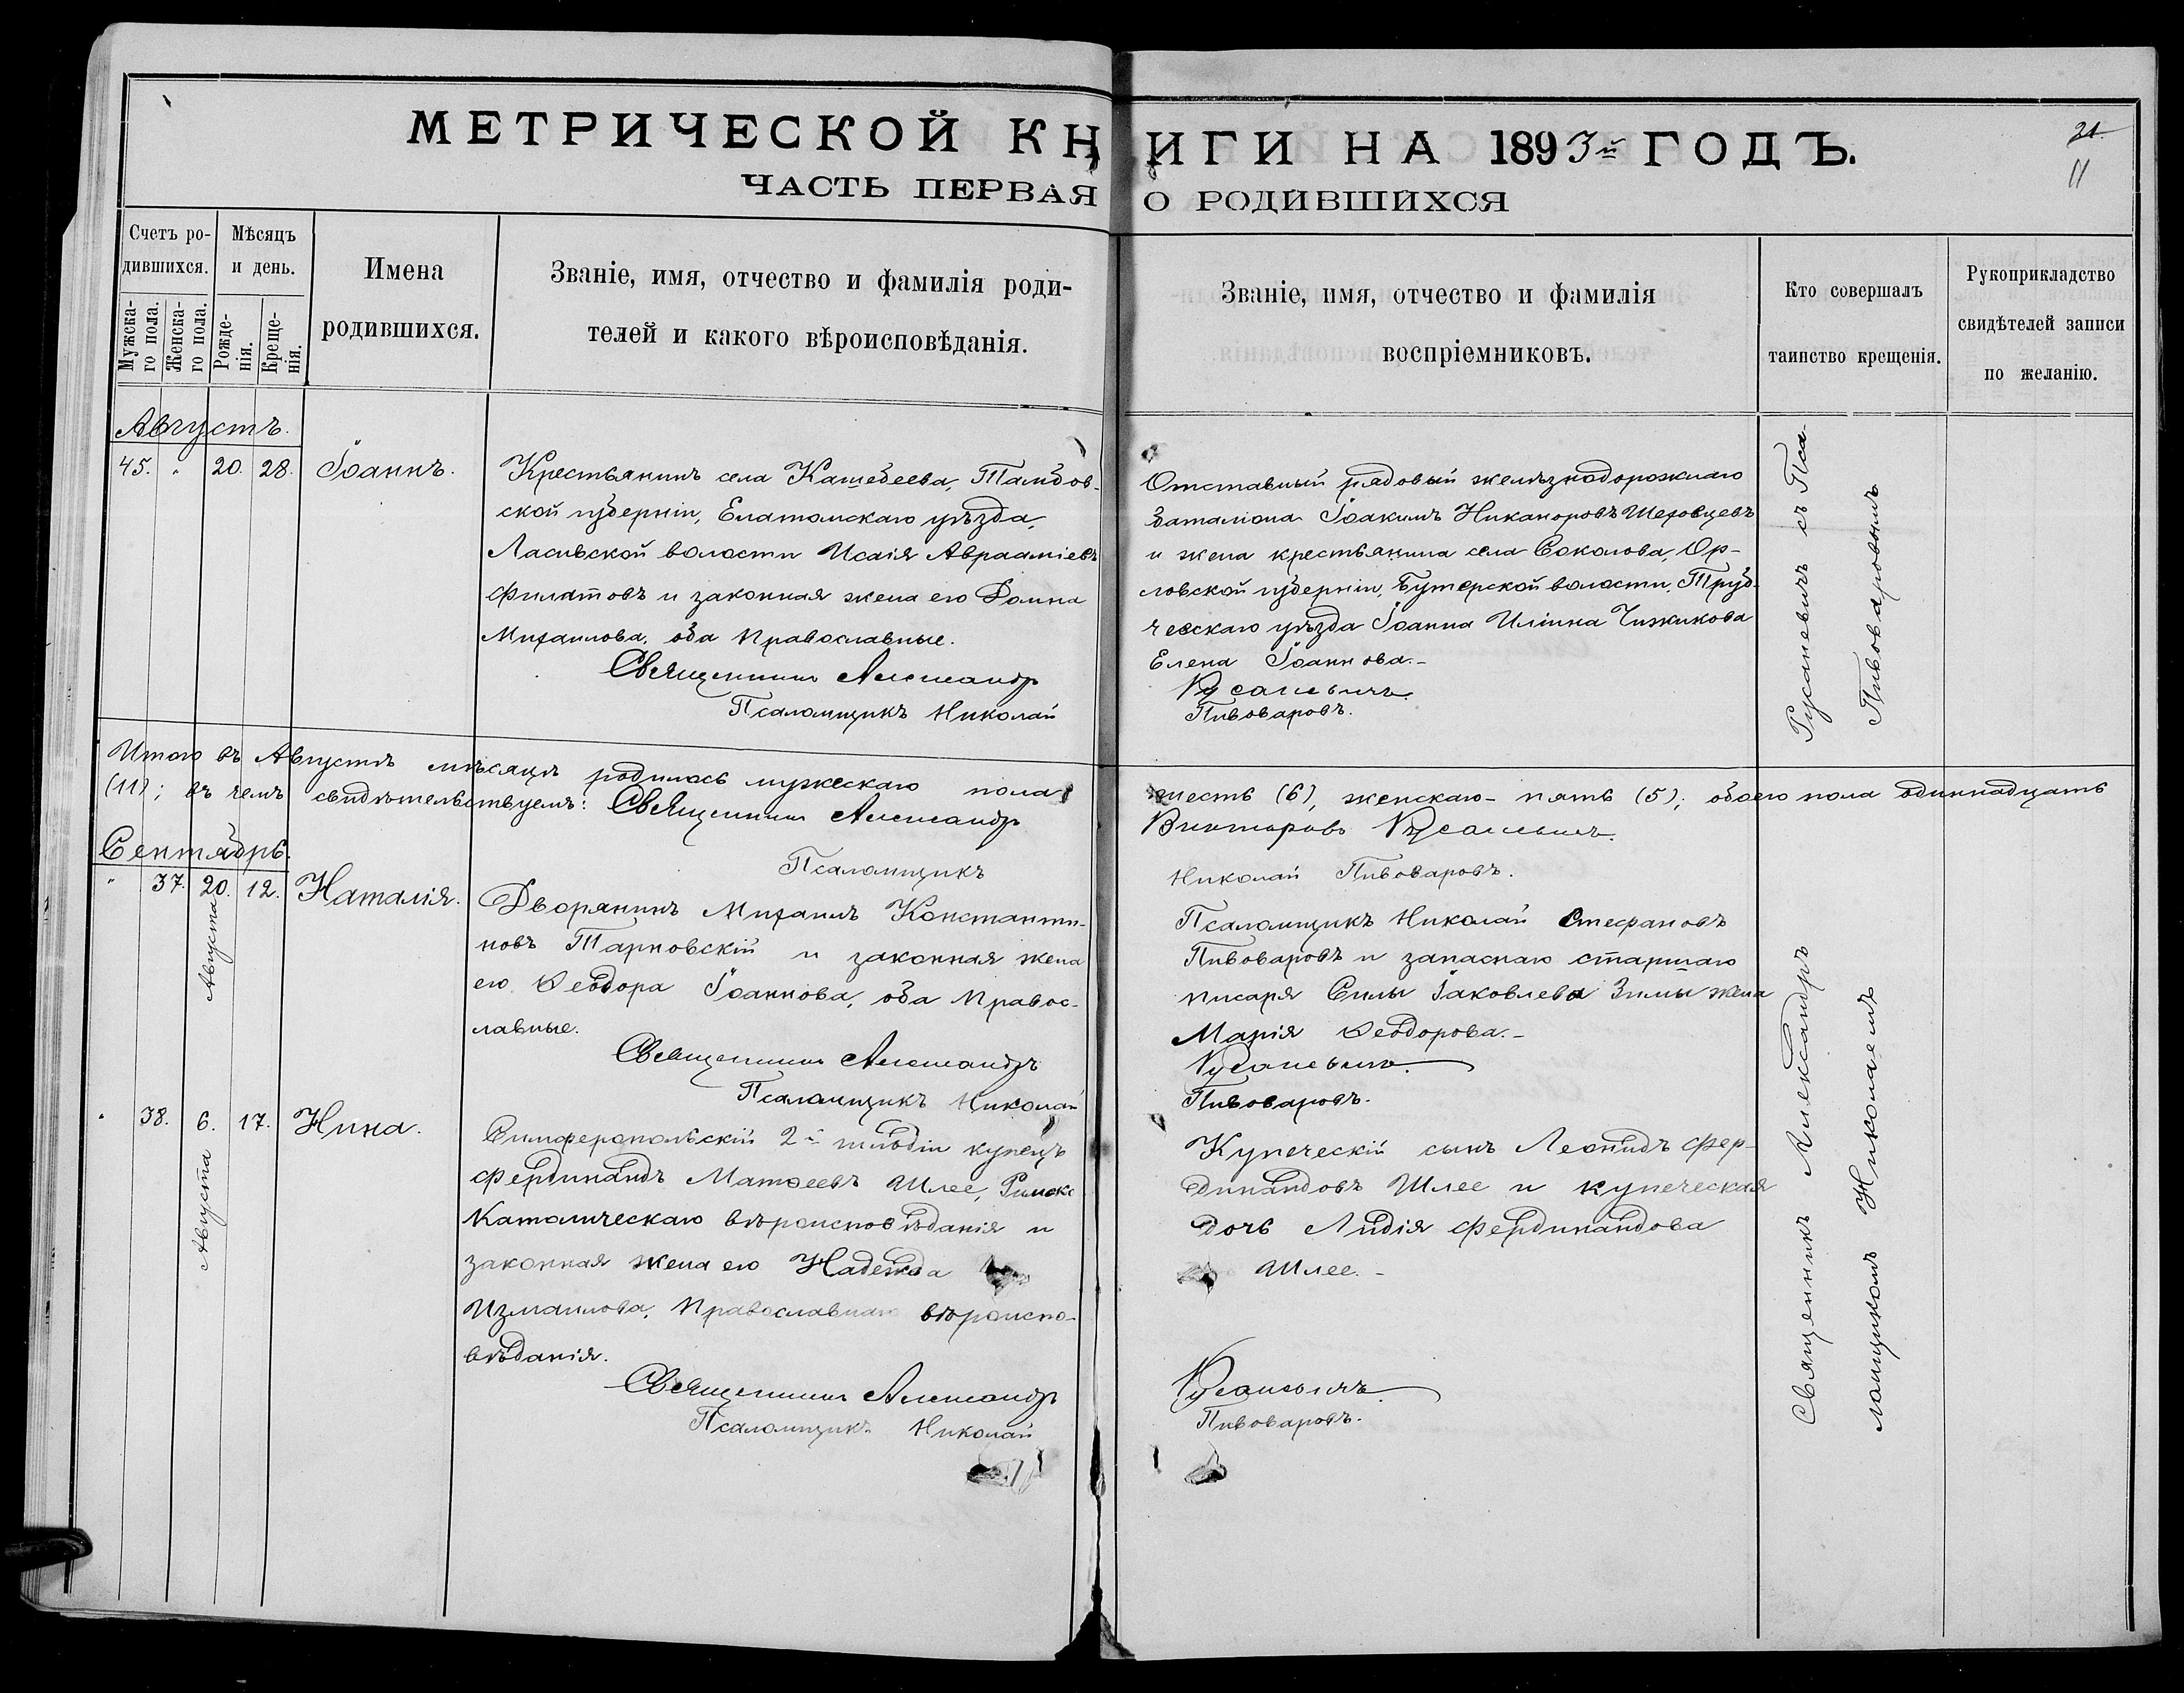 МЕТРИЧЕСКОЙ КНИГИ НА 1893й ГОДЪ.
21.
11
ЧАСТЬ ПЕРВАЯ О РОДИВШИХСЯ
Счетъ ро-
дившихся.
Мужска-
го пола.
Женска-
го пола.
Мѣсяцъ
и день.
Рожде-
нія.
Креще-
нія.
Имена
родившихся.
Званіе, имя, отчество и фамилія роди-
телей и какого вѣроисповѣданія.
Званіе, имя, отчество и фамилія
воспріемниковъ.
Кто совершалъ
таинство крещенія.
Рукоприкладство
свидѣтелей записи
по желанію.
Августъ.
45. " 20. 28. Іоаннъ.
Крестьянинъ села Кашебеева, Тамбов-
ской губерніи, Елатомскаго уѣзда,
Ласиѣской волости Исаія Авраамiевъ
Филатовъ и законная жена его Домна
Михаилова, оба Православные.
Священникъ Александръ
Псаломщикъ Николай
Отставный рядовый желѣзнодорожнаго
баталіона Іоакимъ Никаноровъ Шеховцевъ
и жена крестьянина села Соколова, Ор-
ловской губерніи, Бутерской волости, Труб-
чевскаго уѣзда Іоанна Иліина Чижикова
Елена Іоаннова.-
Русаневичъ.
Пивоваровъ.
Русаневичъ съ Пса-
Пивоваровымъ
Итого въ Августѣ мѣсяцѣ родилось мужескаго пола шесть (6), женскаго - пять (5); обоего пола одиннадцать
(11); въ чемъ свидѣтельствуемъ: Священникъ Александръ Викторовъ Русаневичъ.
Псаломщикъ Николай Пивоваровъ.
Сентябрь.
" 37. 20. Августа 12. Наталія.
Дворянинъ Михаилъ Константи-
новъ Тарновскій и законная жена
его Ѳеодора Іоаннова, оба Правос-
лавные.
Священникъ Александръ
Псаломщикъ Николай
Псаломщикъ Николай Стефановъ
Пивоваровъ и запаснаго старшаго
писаря Силы Іаковлева Зимы жена
Марія Ѳеодорова.-
Русаневичъ.
Пивоваровъ.
" 38. 6. Августа 17. Нина.
Симферопольскій 2-й гильдіи купецъ
Фердинандъ Матѳеевъ Шлее, Римско
Католическаго вѣроисповѣданія и
законная жена его Надежда
Измаилова, Православнаго вѣроиспо-
вѣданія.
Священникъ Александръ
Псаломщикъ Николай
Купеческій сынъ Леонидъ Фер-
динандовъ Шлее и купеческая
дочь Лидія Фердинандова
Шлее.-
Русаневичъ
Пивоваровъ.
Священникъ Александръ
ломщикомъ Николаемъ